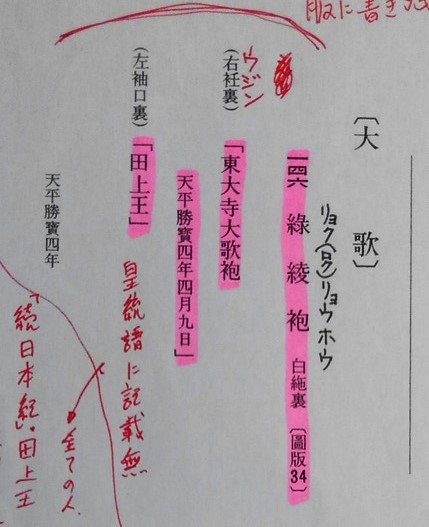 服に書き
〔大歌〕
リョク(ロク)リョウ ホウ
一四六 綠綾袍 白絁裏 〔圖版34〕
ウジン
(右衽裏)「東大寺大歌袍
天平勝寶四年四月九日」
(左袖口裏)「田上王」
皇統譜に記載無
天平勝寶四年
全ての人
「続日本紀」田上王